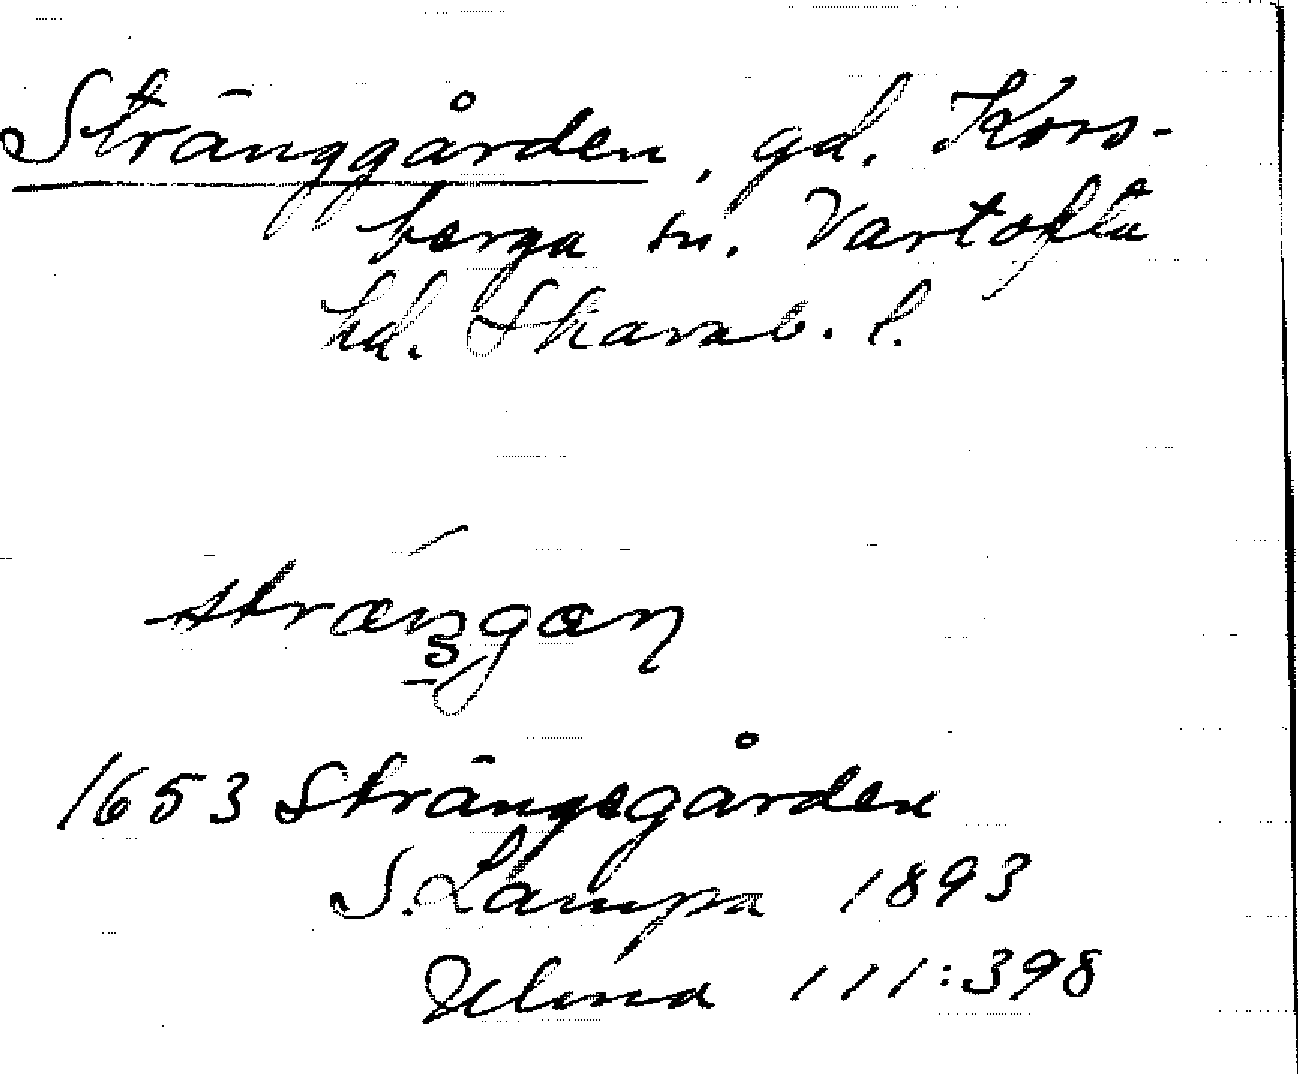 Stränggården, gd. Kors-
berga sn. Vartofta
hd. Skarab. l.
strængan
1653 Strängegården
S. Lampa 1893
111:398